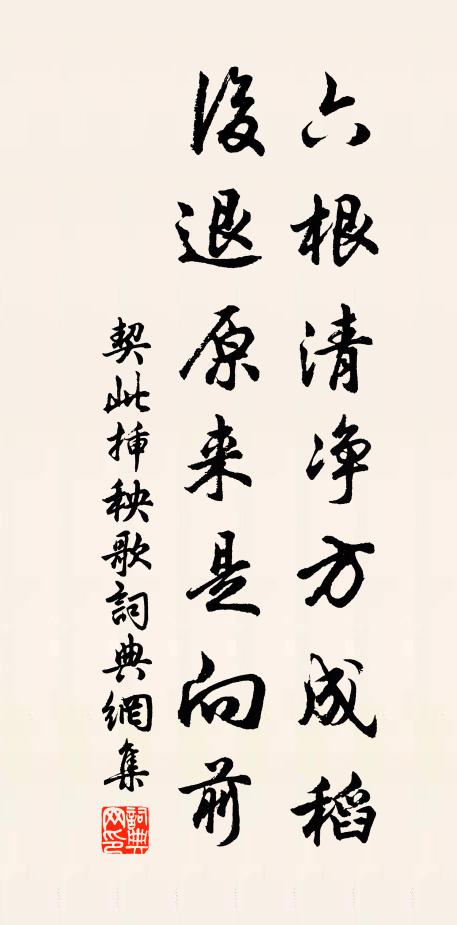 六根清净方成稻
後退原来是向前
契此插秧歌詞典網集
詞典网印